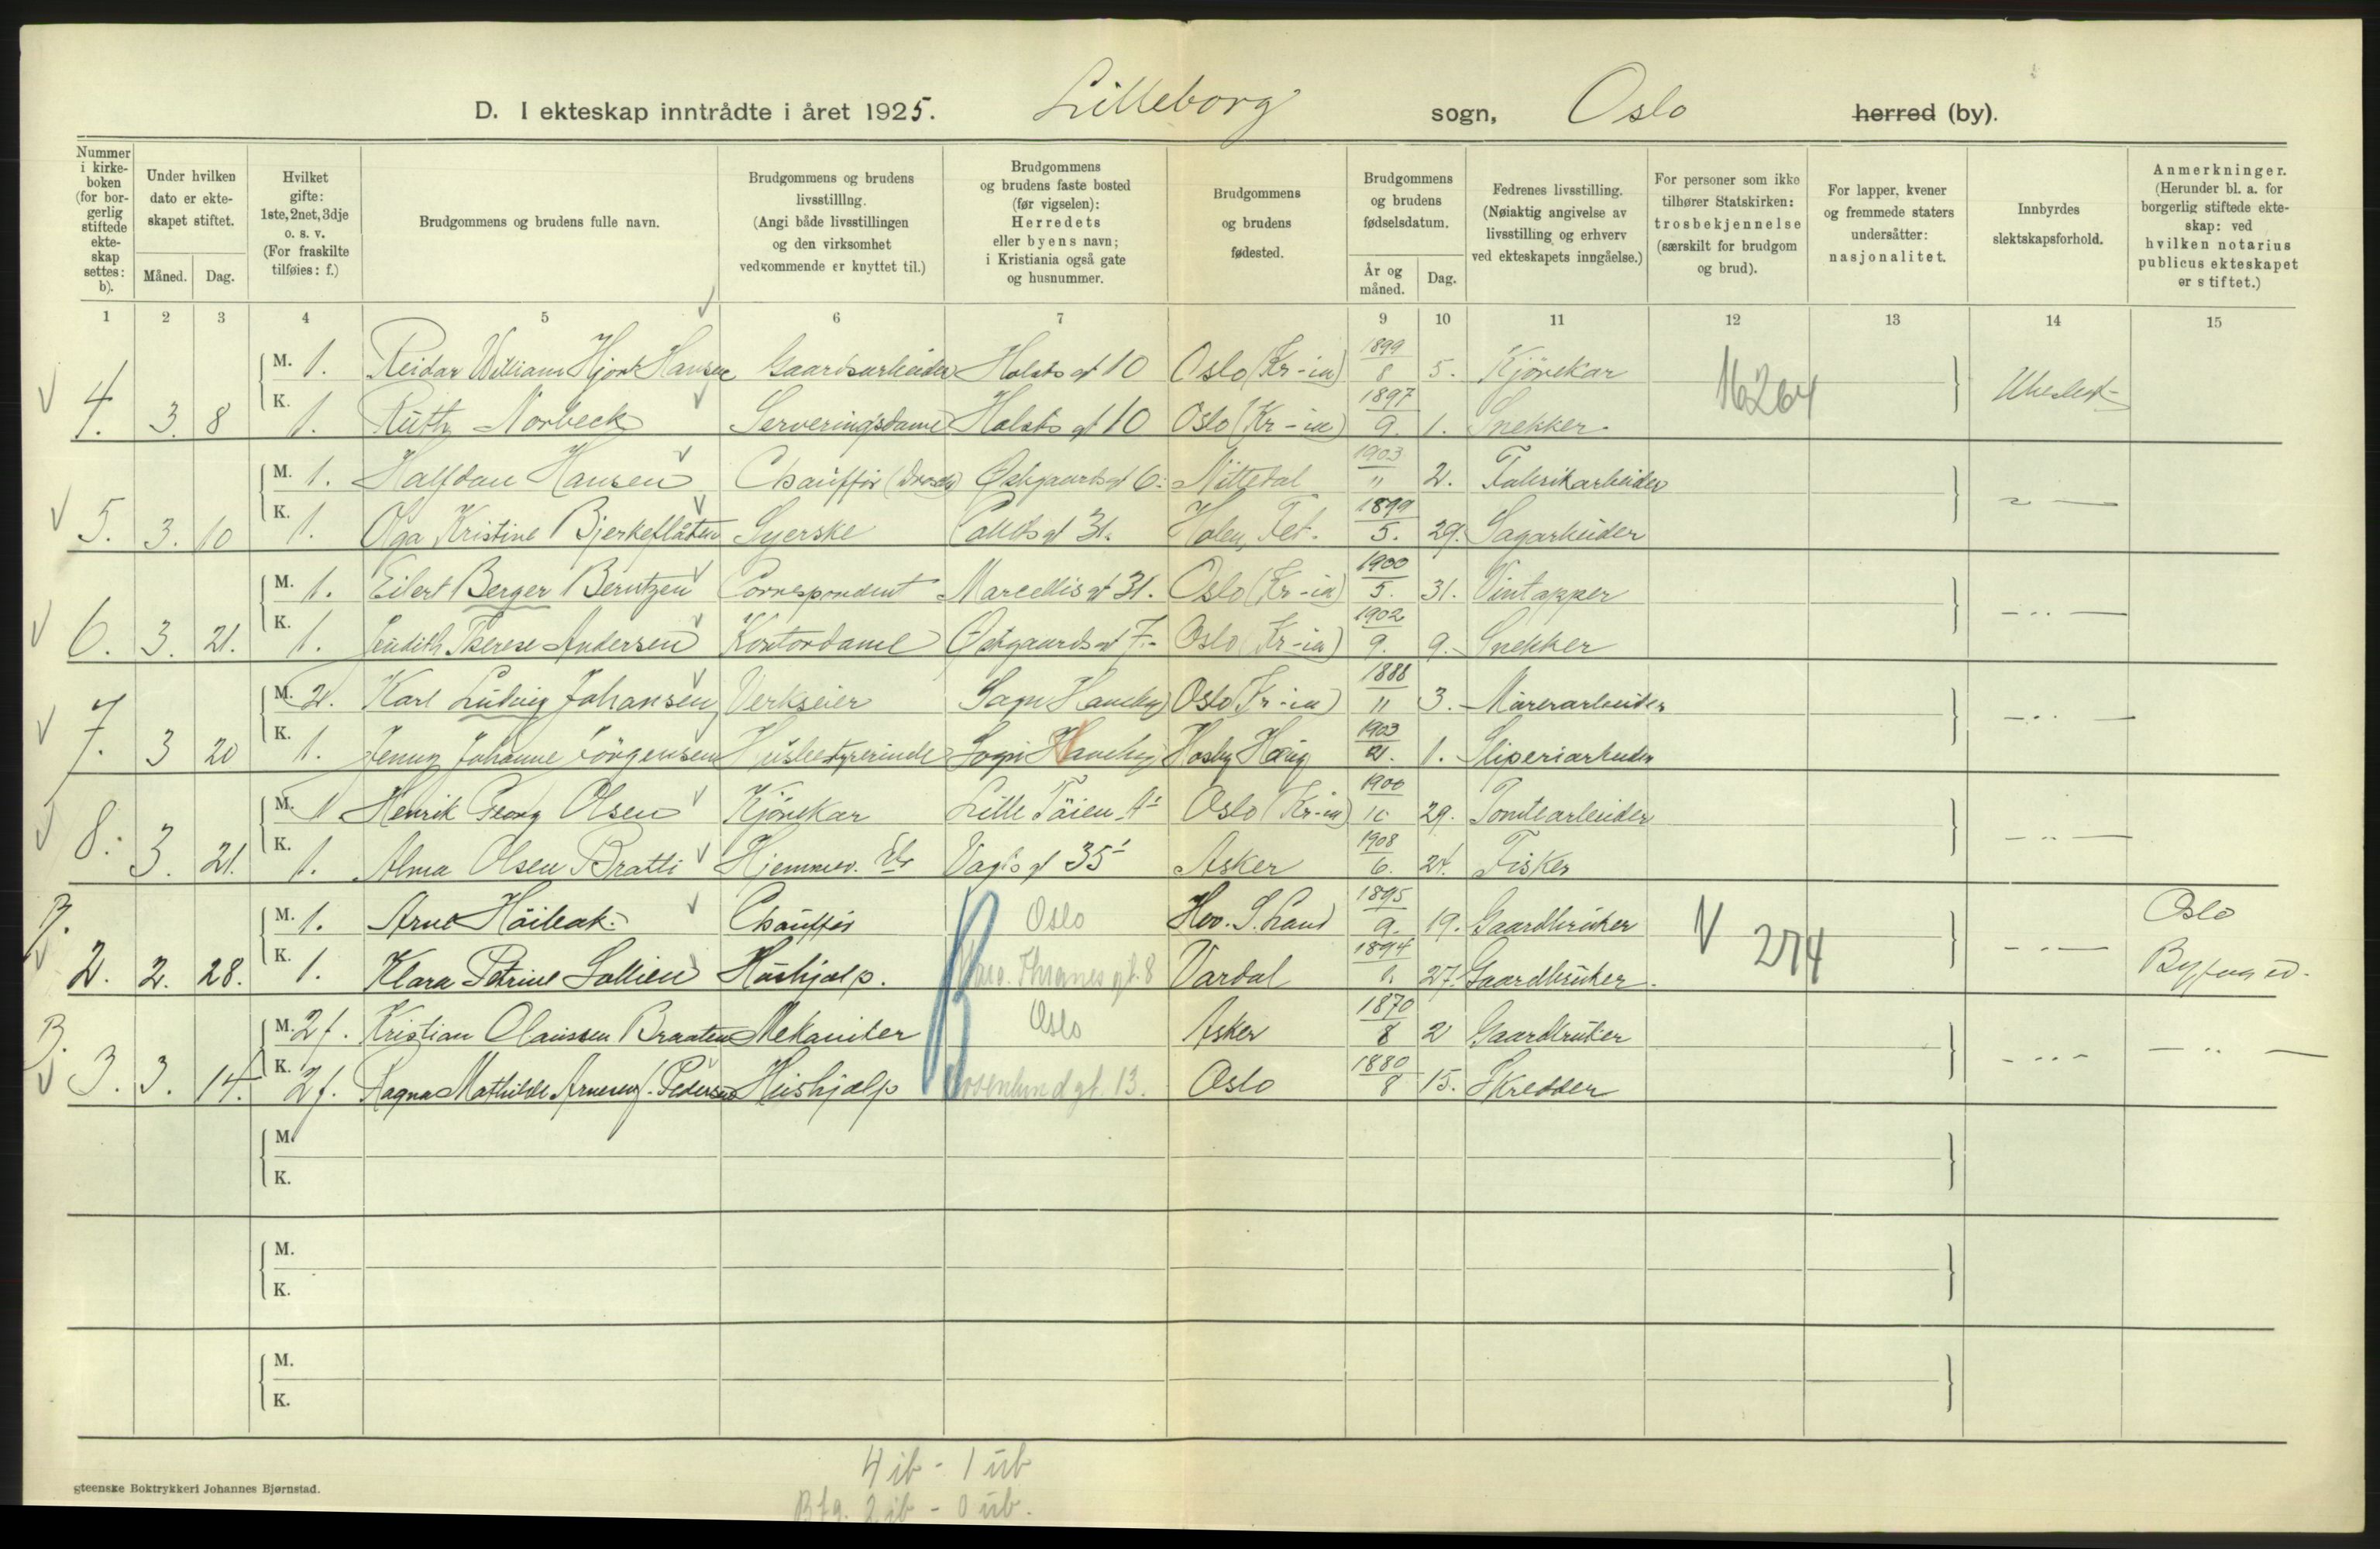 D. I ekteskap inntrådte i året 1925. Lilleborg sogn, Oslo herred (by).
Nummer i kirke-boken (for bor-gerlig stiftede ekte-skap settes: b).
Under hvilken dato er ekte-skapet stiftet.
Måned. Dag.
Hvilket gifte: 1ste, 2net, 3dje o. s. v. (For fraskilte tilføies: f.)
Brudgommens og brudens fulle navn.
Brudgommens og brudens livsstilling. (Angi både livsstillingen og den virksomhet vedkommende er knyttet til.)
Brudgommens og brudens faste bosted (før vigselen): Herredets eller byens navn; i Kristiania også gate og husnummer.
Brudgommens og brudens fødested.
Brudgommens og brudens fødselsdatum.
År og måned. Dag.
Fedrenes livsstilling. (Nøiaktig angivelse av livsstilling og erhverv ved ekteskapets inngåelse.)
For personer som ikke tilhører Statskirken: trosbekjennelse (særskilt for brudgom og brud).
For lapper, kvener og fremmede staters undersåtter: nasjonalitet.
Innbyrdes slektskapsforhold.
Anmerkninger. (Herunder bl. a. for borgerlig stiftede ekte-skap: ved hvilken notarius publicus ekteskapet er stiftet.)
1 2 3 4 5 6 7 9 10 11 12 13 14 15
M. 1. Reidar William Hjort Hansen Gaardsarbeider Holsts gt 10 Oslo (Kr-ia) 1899 8 5. Kjörekar
4. 3. 8 K. 1. Ruth Norbeck Serveringsdame Holsts gt 10 Oslo (Kr-ia) 1897 9. 1. Snekker. 16264
M. 1. Halfdan Hansen Chaufför (Drosche) Østgaards gt 6. Nittedal 1903 " 2. Fabrikarbeider
5. 3. 10 K. 1. Olga Kristine Bjerkeflaten Syerske gt 31. Fet. 1899 5. 29. Sagarbeider
M. 1. Eilert Berger Berntzen Correspondent Marcellis gt 31. Oslo (Kr-ia) 1900 5. 31. Vintapper
6. 3. 21. K. 1. Judith Therese Andersen Kontordame Østgaards gt 7. Oslo (Kr-ia) 1902 9. 9. Snekker
M. 2. Karl Ludvig Johansen Verkseier Oslo (Kr-ia) 1888 11 3. Murerarbeider
7. 3 20 K. 1. Jenny Johanne Jörgensen Husbestyrerinde 1903 1. Sliperiarbeider
M. 1 Henrik Georg Olsen Kjörekar Lille Töien Oslo (Kr-ia) 1900 10 29. Tomtearbeider
8. 3. 21. K. 1. Alma Olsen Bratli Hjemmev. gt 35 Asker 1908 6. 24. Fisker
B. M. 1. Arne Höibak. Chaufför Oslo Hov. S. Land 1895 9. 19. Gaardbruker Oslo
2. 2. 28. K. 1. Klara Petrine Sollien Hushjælp. Thranes gt. 8 Vardal 1894 1. 27. Gaardbruker. 274 Byfogd.
B. M. 2 f. Kristian Olaussen Braaten Mekaniker Oslo Asker 1870 8 2 Gaardbruker
3. 3. 14. K. 2 f. Ragna Mathilde Arnesen f. Pedersen Hushjælp Rosenlundgt. 13. Oslo 1880 8 15. Skredder
M.
K.
M.
K.
M.
K.
4 ib - 1 ub
gteenske Boktrykkeri Johannes Bjørnstad.
Bfg. 2 ib - 0 ub.